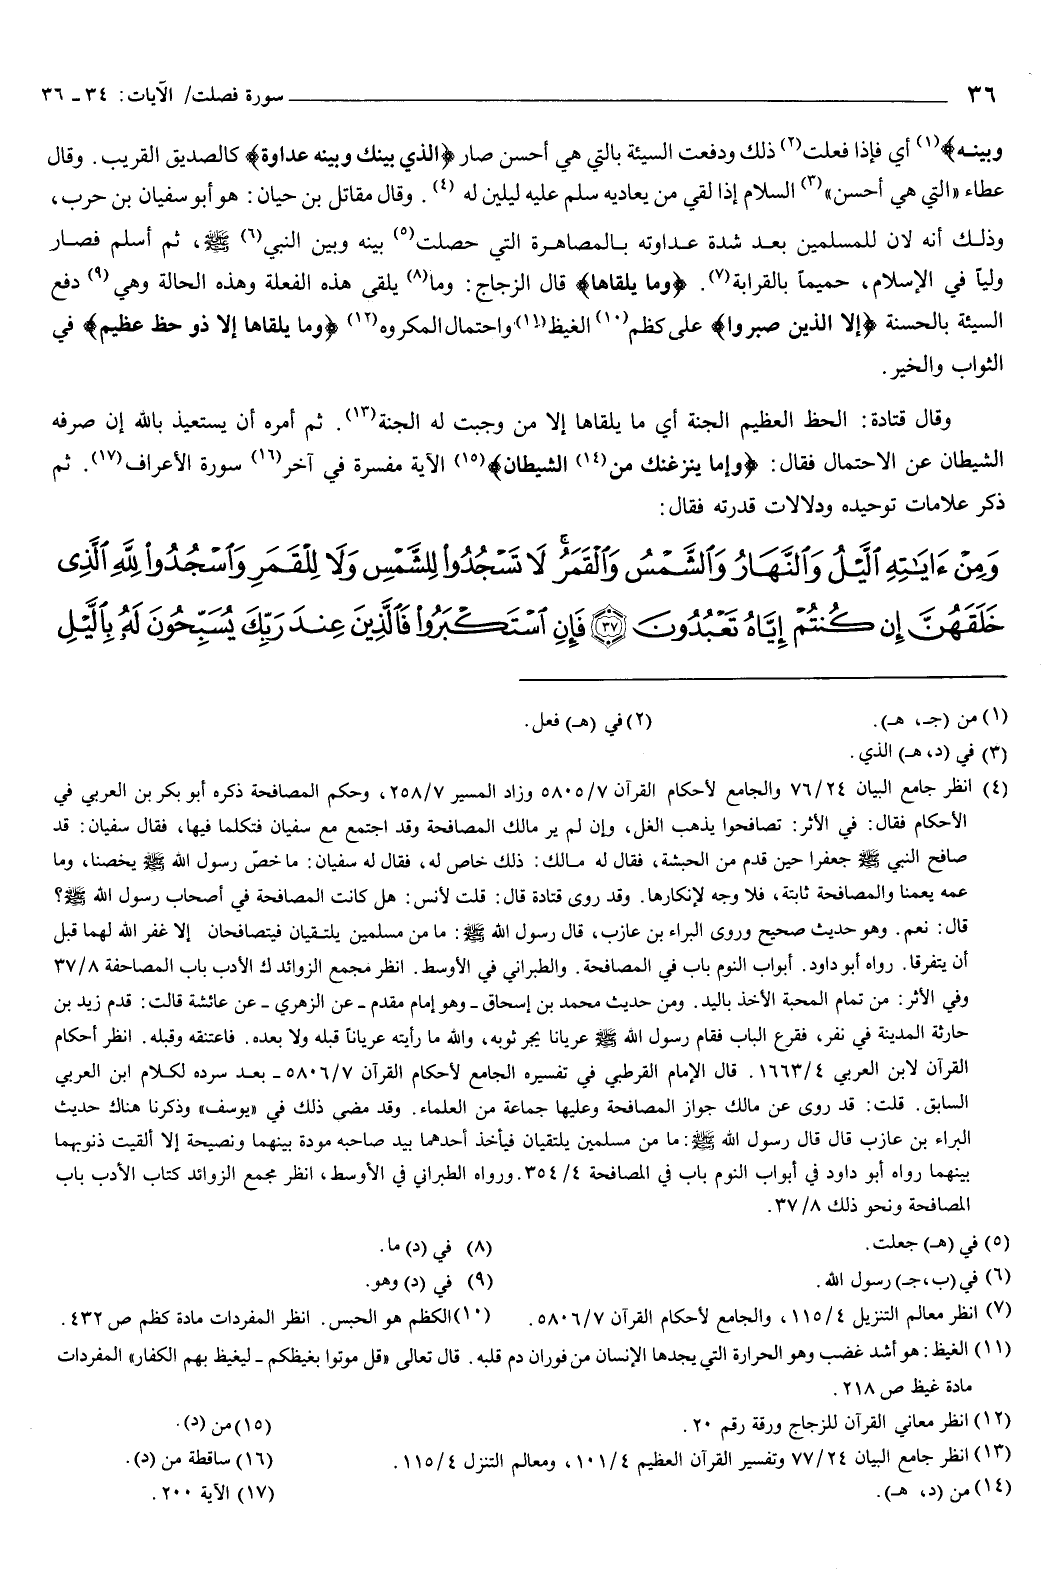 ٣٦ سورة فصلت/ الآيات: ٣٤ ـ ٣٦
وبينـه﴾(١) أي فإذا فعلت(٢) ذلك ودفعت السيئة بالتي هي أحسن صار ﴿الذي بينك وبينه عداوة﴾ كالصديق القريب. وقال
عطاء «التي هي أحسن»(٣) السلام إذا لقي من يعاديه سلم عليه ليلين له (٤). وقال مقاتل بن حيان: هو أبو سفيان بن حرب،
وذلـك أنه لان للمسلمين بعـد شدة عـداوته بـالمصاهـرة التي حصلت(٥) بينه وبين النبي(٦) ﷺ، ثم أسلم فصـار
ولياً في الإسلام، حميماً بالقرابة(٧). ﴿وما يلقاها﴾ قال الزجاج: وما(٨) يلقى هذه الفعلة وهذه الحالة وهي (٩) دفع
السيئة بالحسنة ﴿إلا الذين صبروا﴾ على كظم(١٠) الغيظ(١١) واحتمال المكروه(١٢) ﴿وما يلقاها إلا ذو حظ عظيم﴾ في
الثواب والخير.
وقال قتادة: الحظ العظيم الجنة أي ما يلقاها إلا من وجبت له الجنة(١٣). ثم أمره أن يستعيذ بالله إن صرفه
الشيطان عن الاحتمال فقال: ﴿وإما ينزغنك من(١٤) الشيطان﴾(١٥) الآية مفسرة في آخر(١٦) سورة الأعراف(١٧). ثم
ذكر علامات توحيده ودلالات قدرته فقال:
وَمِنْ ءَايَٰتِهِ ٱلَّيْلُ وَٱلنَّهَارُ وَٱلشَّمْسُ وَٱلْقَمَرُ ۚ لَا تَسْجُدُوا۟ لِلشَّمْسِ وَلَا لِلْقَمَرِ وَٱسْجُدُوا۟ لِلَّهِ ٱلَّذِى
خَلَقَهُنَّ إِن كُنتُمْ إِيَّاهُ تَعْبُدُونَ ﴿٣٧﴾ فَإِنِ ٱسْتَكْبَرُوا۟ فَٱلَّذِينَ عِندَ رَبِّكَ يُسَبِّحُونَ لَهُۥ بِٱلَّيْلِ
(١) من (جـ، هـ). (٢) في (هـ) فعل.
(٣) في (د، هـ) الذي.
(٤) انظر جامع البيان ٧٦/٢٤ والجامع لأحكام القرآن ٥٨٠٥/٧ وزاد المسير ٢٥٨/٧، وحكم المصافحة ذكره أبو بكر بن العربي في
الأحكام فقال: في الأثر: تصافحوا يذهب الغل، وإن لم ير مالك المصافحة وقد اجتمع مع سفيان فتكلما فيها، فقال سفيان: قد
صافح النبي ﷺ جعفرا حين قدم من الحبشة، فقال له مـالك: ذلك خاص له، فقال له سفيان: ما خصّ رسول الله ﷺ يخصنا، وما
عمه يعمنا والمصافحة ثابتة، فلا وجه لإنكارها. وقد روى قتادة قال: قلت لأنس: هل كانت المصافحة في أصحاب رسول الله ﷺ؟
قال: نعم. وهو حديث صحيح وروى البراء بن عازب، قال رسول الله ﷺ: ما من مسلمين يلتـقيان فيتصافحان إلا غفر الله لهما قبل
أن يتفرقا. رواه أبو داود. أبواب النوم باب في المصافحة. والطبراني في الأوسط. انظر مجمع الزوائد ك الأدب باب المصافحة ٣٧/٨
وفي الأثر: من تمام المحبة الأخذ باليد. ومن حديث محمد بن إسحاق ـ وهو إمام مقدم ـ عن الزهري ـ عن عائشة قالت: قدم زيد بن
حارثة المدينة في نفر، فقرع الباب فقام رسول الله ﷺ عريانا يجر ثوبه، والله ما رأيته عرياناً قبله ولا بعده. فاعتنقه وقبله. انظر أحكام
القرآن لابن العربي ١٦٦٣/٤. قال الإمام القرطبي في تفسيره الجامع لأحكام القرآن ٥٨٠٦/٧ ـ بعـد سرده لكـلام ابن العربي
السابق. قلت: قد روى عن مالك جواز المصافحة وعليها جماعة من العلماء. وقد مضى ذلك في «يوسف» وذكرنا هناك حديث
البراء بن عازب قال قال رسول الله ﷺ: ما من مسلمين يلتقيان فيأخذ أحدهما بيد صاحبه مودة بينهما ونصيحة إلا ألقيت ذنوبهما
بينهما رواه أبو داود في أبواب النوم باب في المصافحة ٣٥٤/٤. ورواه الطبراني في الأوسط، انظر مجمع الزوائد كتاب الأدب باب
المصافحة ونحو ذلك ٣٧/٨.
(٥) في (هـ) جعلت. (٨) في (د) ما.
(٦) في (ب، جـ) رسول الله. (٩) في (د) وهو.
(٧) انظر معالم التنزيل ١١٥/٤، والجامع لأحكام القرآن ٥٨٠٦/٧. (١٠) الكظم هو الحبس. انظر المفردات مادة كظم ص ٤٣٢.
(١١) الغيظ: هو أشد غضب وهو الحرارة التي يجدها الإنسان من فوران دم قلبه. قال تعالى «قل موتوا بغيظكم ـ ليغيظ بهم الكفار» المفردات
مادة غيظ ص ٢١٨.
(١٢) انظر معاني القرآن للزجاج ورقة رقم ٢٠. (١٥) من (د).
(١٣) انظر جامع البيان ٧٧/٢٤ وتفسير القرآن العظيم ١٠١/٤، ومعالم التنزل ١١٥/٤. (١٦) ساقطة من (د).
(١٤) من (د، هـ). (١٧) الآية ٢٠٠.